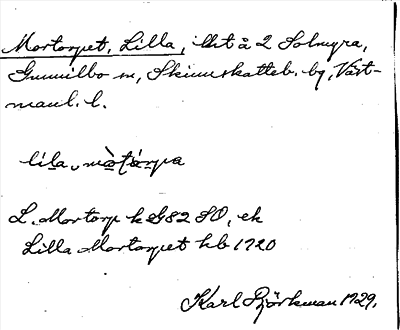 Mortorpet, Lilla, lht å 2 Solmyra,
Gunnilbo sn, Skinnskatteb. bg, Väst-
manl. l.
L. Mortorp k G82 SO, ek
Lilla Mortorpet hb 1720
Karl Björkman 1929.